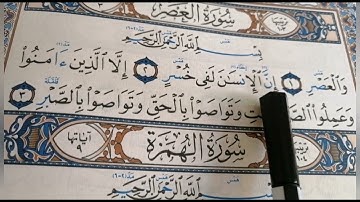 سُورَةُ العَصْرِ
بِسْمِ ٱللَّهِ ٱلرَّحْمَٰنِ ٱلرَّحِيمِ
وَٱلْعَصْرِ ١ إِنَّ ٱلْإِنسَٰنَ لَفِى خُسْرٍ ٢ إِلَّا ٱلَّذِينَ ءَامَنُوا۟
وَعَمِلُوا۟ وَتَوَاصَوْا۟ بِٱلْحَقِّ وَتَوَاصَوْا۟ بِٱلصَّبْرِ ٣
آيَاتُهَا ٩ سُورَةُ الهُمَزَةِ
بِسْمِ ٱللَّهِ ٱلرَّحْمَٰنِ ٱلرَّحِيمِ